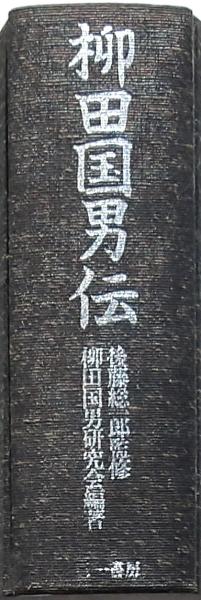 柳田国男伝
後藤総一郎監修
柳田国男研究会編著
三一書房